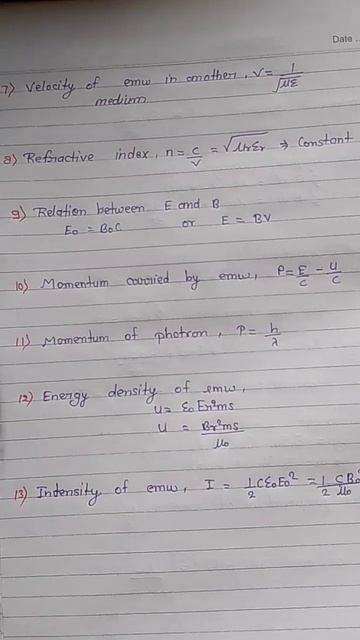 Date ..
7) Velocity of emw in another, v = 1/√με
medium
8) Refractive index, n = c/v = √μrεr → Constant
9) Relation between E and B
E0 = B0C or E = BV
10) Momentum carried by emw, P = E/C - U/C
11) Momentum of photron, P = h/λ
12) Energy density of emw,
u = ε0 Er²ms
u = Br²ms/μ0
13) Intensity of emw, I = 1/2 Cε0E0² = 1/2 CB0/μ0